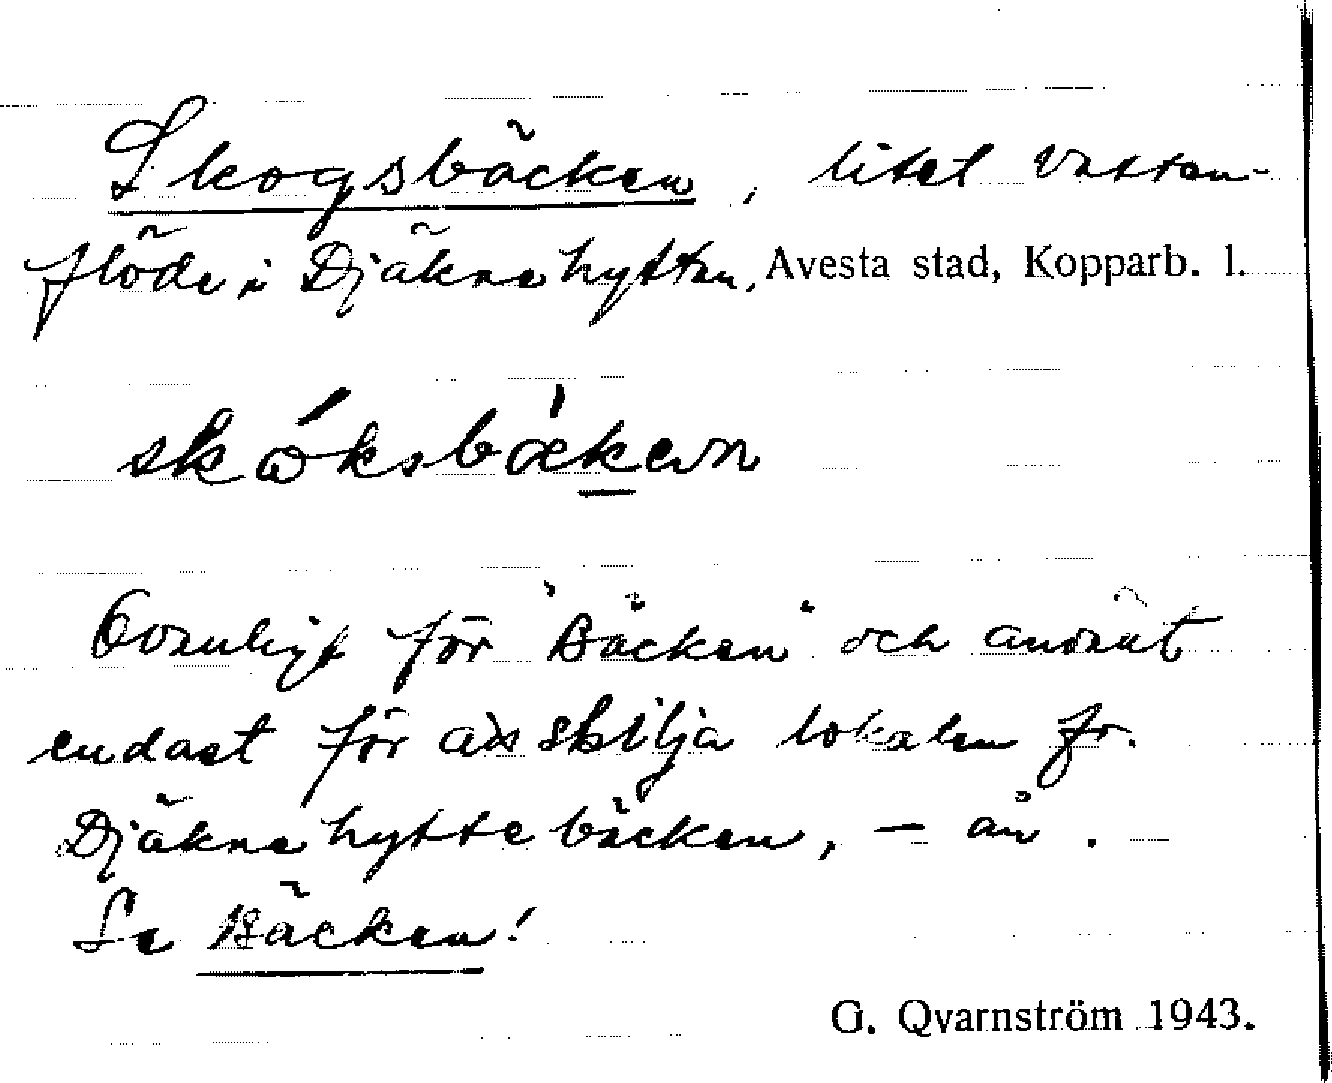 Skogsbäcken, litet vatten-
flöde i Djäknehyttan, Avesta stad, Kopparb. l.
skóksbǽken
Ovanligt för "Bäcken" och använt
endast för att skilja lokalen fr.
Djäknehyttebäcken, – ån.
Se Bäcken!
G. Qvarnström 1943.